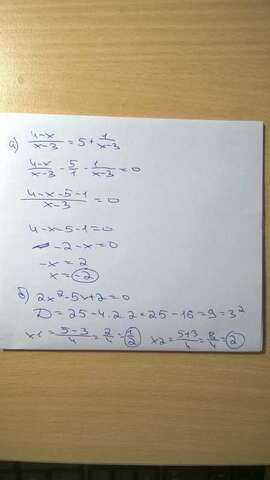 а) (4-x)/(x-3) = 5 + 1/(x-3)
(4-x)/(x-3) - 5/1 - 1/(x-3) = 0
(4-x-5-1)/(x-3) = 0
4-x-5-1=0
-2-x=0
-x=2
x=-2
б) 2x²-5x+2=0
D=25-4·2·2=25-16=9=3²
x1=(5-3)/4=2/4=1/2 x2=(5+3)/4=8/4=2